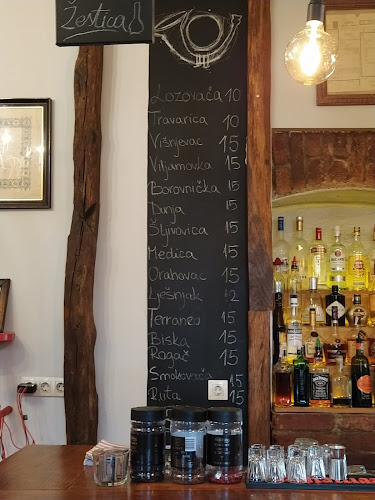 Žestica
Lozovača 10
Travarica 10
Višnjevac 15
Viljamovka 15
Borovnička 15
Dunja 15
Šljivovica 15
Medica 15
Orahovac 15
Lješnjak 12
Terraneo 15
Biska 15
Rogač 15
Smokovača 15
Ruta 15